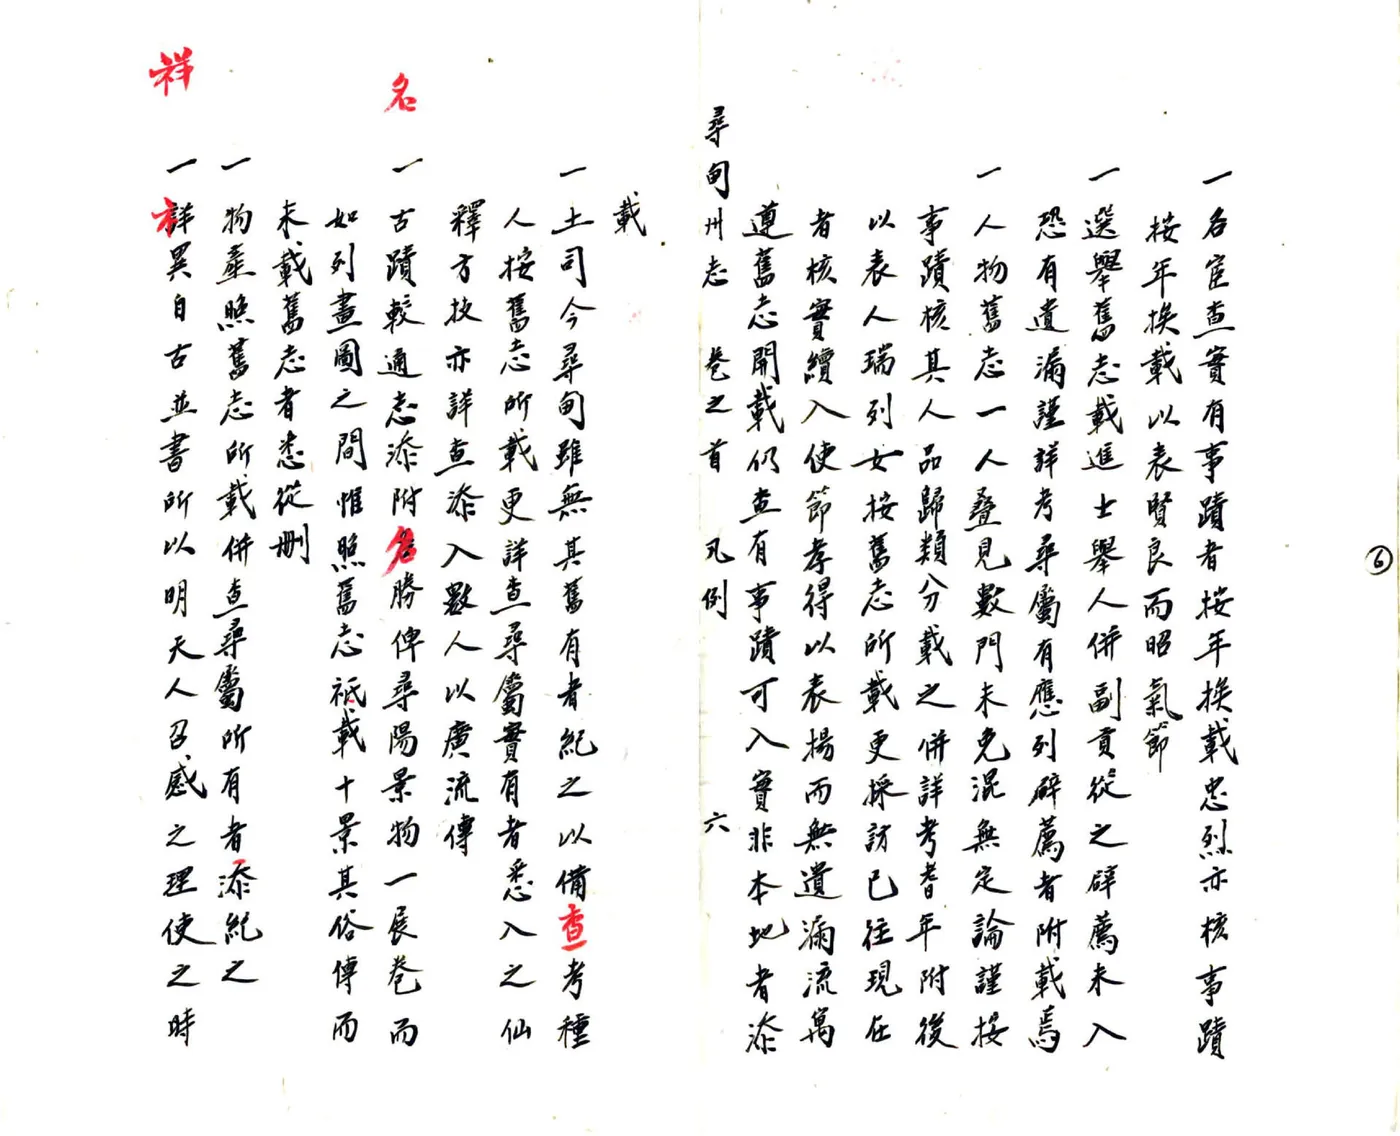 一名宦查實有事蹟者按年換載忠烈亦核事蹟
按年換載以表賢良而昭氣節
一選舉舊志載進士舉人併副貢從之辟薦未入
恐有遺漏謹詳考尋屬有應列辟薦者附載焉
一人物舊志一人疊見數門未免混無定論謹按
事蹟核其人品歸類分載之併詳考耆年附後
以表人瑞列女按舊志所載更採訪已往現在
者核實續入使節孝得以表揚而無遺漏流寓
遵舊志開載仍查有事蹟可入實非本地者添
尋甸州志 卷之首 凡例 六
載
一土司今尋甸雖無其舊有者紀之以備查考種
人按舊志所載更詳查尋屬實有者悉入之仙
釋方技亦詳查添入數人以廣流傳
一古蹟較通志添附名勝俾尋陽景物一展卷而
名
如列畫圖之間惟照舊志祗載十景其俗傳而
未載舊志者悉從刪
一物產照舊志所載併查尋屬所有者添紀之
一詳異自古並書所以明天人召感之理使之時
祥
6